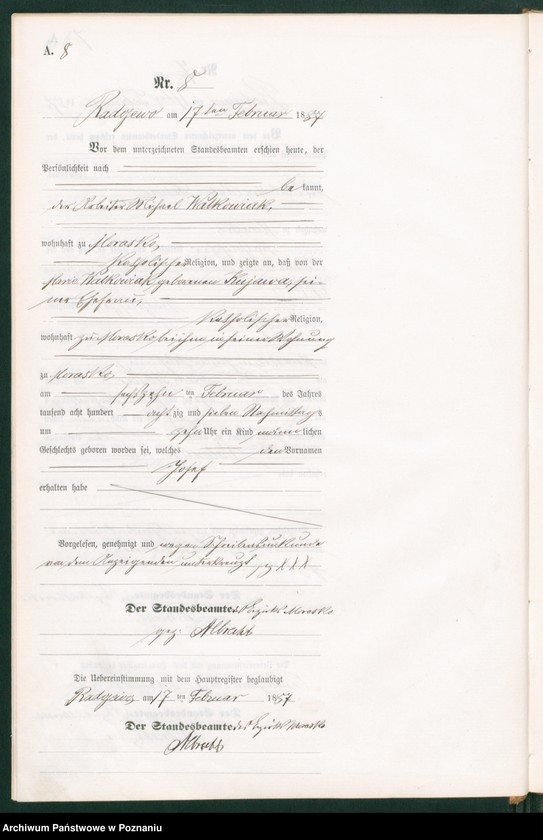 A. 8
Nr. 8
Radojewo am 17ten Februar 1887
Vor dem unterzeichneten Standesbeamten erschien heute, der
Persönlichkeit nach
bekannt,
der Arbeiter Michael Walkowiak,
wohnhaft zu Morasko,
katholischer Religion, und zeigte an, daß von der
Marie Walkowiak geborenen Kujawa, sei-
ner Ehefrau,
katholischer Religion,
wohnhaft zu Morasko bei ihm in seiner Wohnung
zu Morasko,
am sechszehnten Februar des Jahres
tausend acht hundert achtzig und sieben Nachmittags
um zehn Uhr ein Kind männlichen
Geschlechts geboren worden sei, welches den Vornamen
Josef
erhalten habe
Vorgelesen, genehmigt und wegen Schreibensunkunde
von dem Anzeigenden unterkreuzt, gez. xxx
Der Standesbeamte des Bezirks Morasko
gez. Albrecht
Die Uebereinstimmung mit dem Hauptregister beglaubigt
Radojewo am 17ten Februar 1887
Der Standesbeamte des Bezirks Morasko
Albrecht
Archiwum Państwowe w Poznaniu